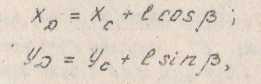 x_D = x_C + ℓ cos β ;
y_D = y_C + ℓ sin β ,